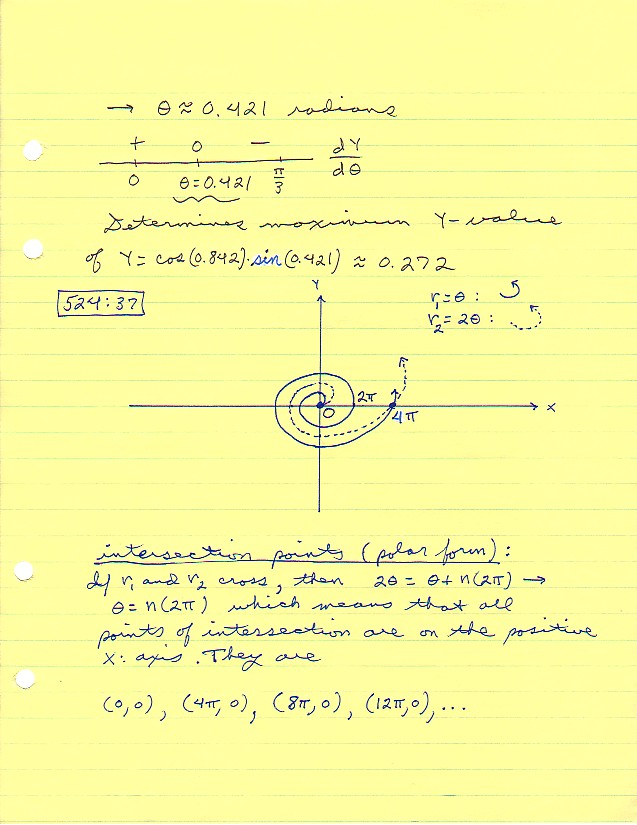 → θ ≈ 0.421 radians
+ 0 — dY/dθ
0 θ=0.421 π/3
Determines maximum Y-value
of Y = cos(0.842)·sin(0.421) ≈ 0.272
524:37
r₁=θ :
r₂=2θ :
Y
2π
0
4π
X
intersection points (polar form) :
If r₁ and r₂ cross, then 2θ = θ + n(2π) →
θ = n(2π) which means that all
points of intersection are on the positive
X: axis. They are
(0,0), (4π,0), (8π,0), (12π,0), ...